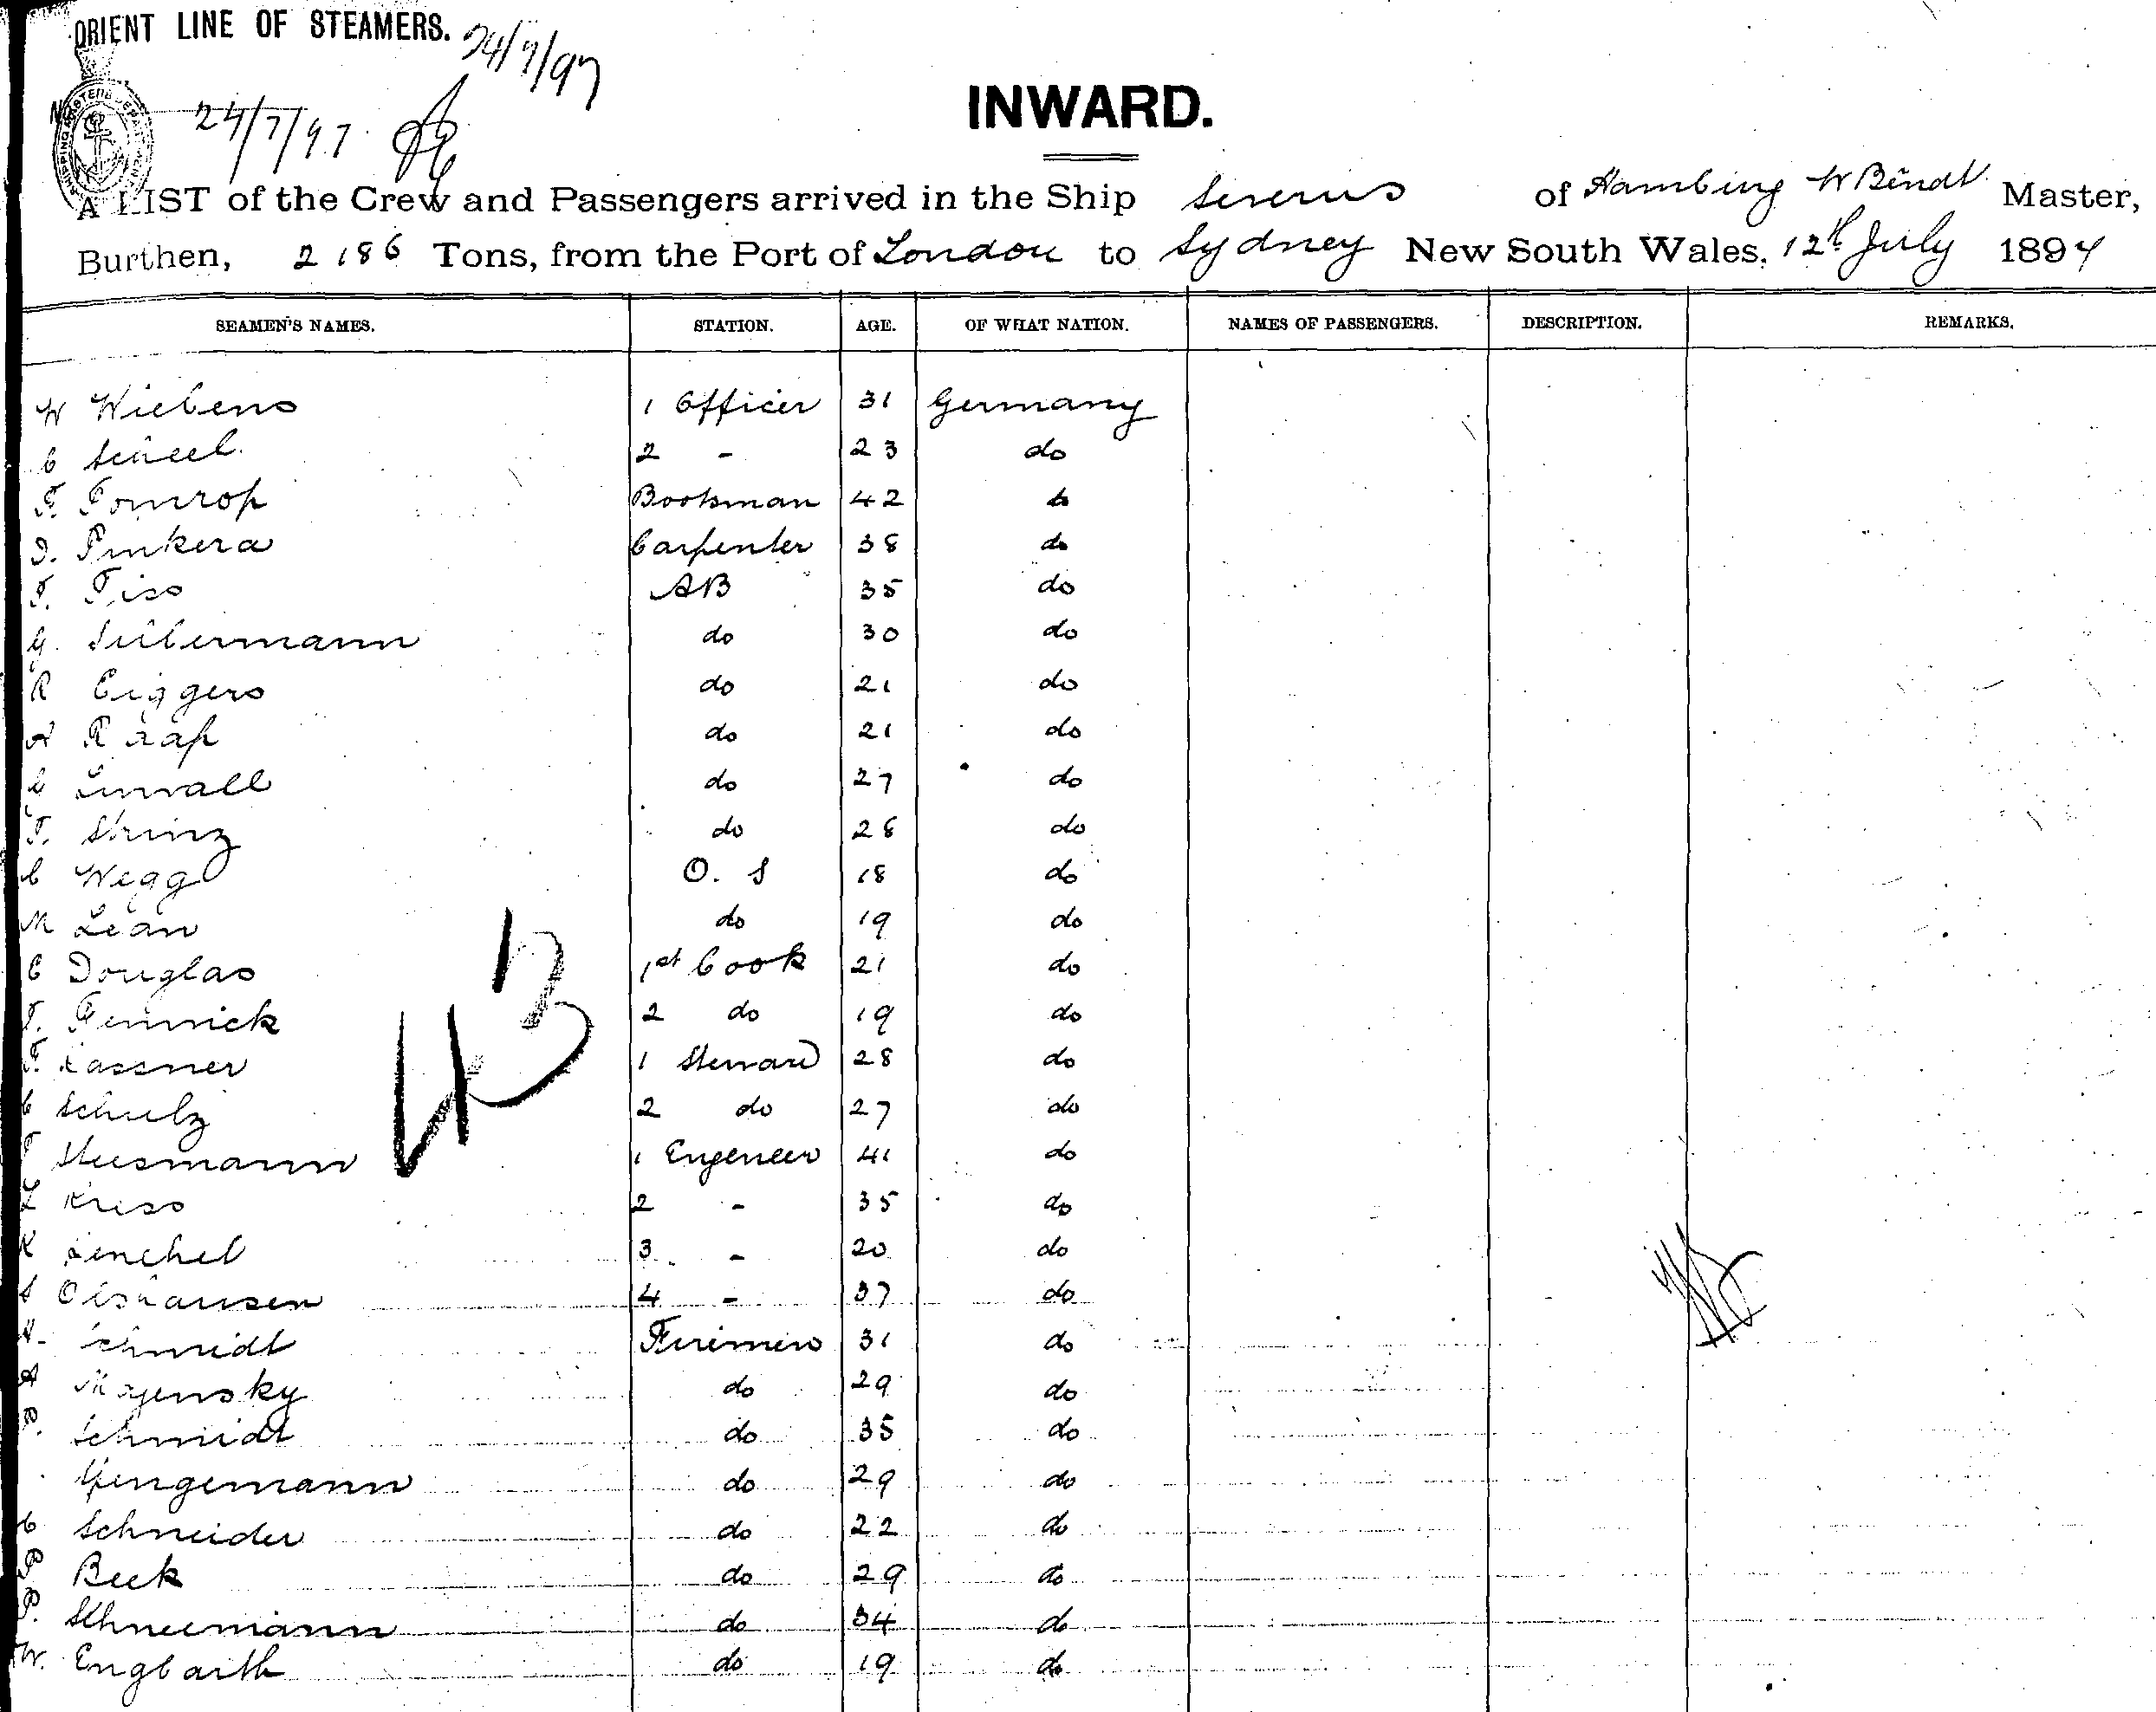 ORIENT LINE OF STEAMERS. 24/7/97
24/7/97
INWARD.
A LIST of the Crew and Passengers arrived in the Ship Severus of Hamburg W Bendt Master,
Burthen, 2186 Tons, from the Port of London to Sydney New South Wales, 12th July 1897
SEAMEN'S NAMES. STATION. AGE. OF WHAT NATION. NAMES OF PASSENGERS. DESCRIPTION. REMARKS.
W Wiebens 1 Officer 31 Germany
C Scheel 2 - 23 do
F. Bootsman 42 do
Carpenter 38 do
AB 35 do
G. Silbermann do 30 do
R Eiggers do 21 do
A Raap do 21 do
do 27 do
T. Strinz do 28 do
C Wegg O. S 18 do
M Lean do 19 do
C Douglas 1st Cook 21 do
2 do 19 do
F. Kassner 1 Steward 28 do
C Schulz 2 do 27 do
1 Engeneer 41 do
2 - 35 do
K 3 - 20 do
Olshausen 4 - 37 do
H. Schmidt Firemen 31 do
A do 29 do
P. Schmidt do 35 do
do 29 do
C Schneider do 22 do
P Beck do 29 do
P. Schneemann do 34 do
W. Engbarth do 19 do